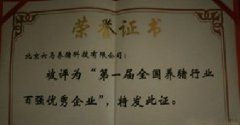 荣誉证书
北京六马养猪科技有限公司：
被评为“第一届全国养猪行业
百强优秀企业”，特发此证。